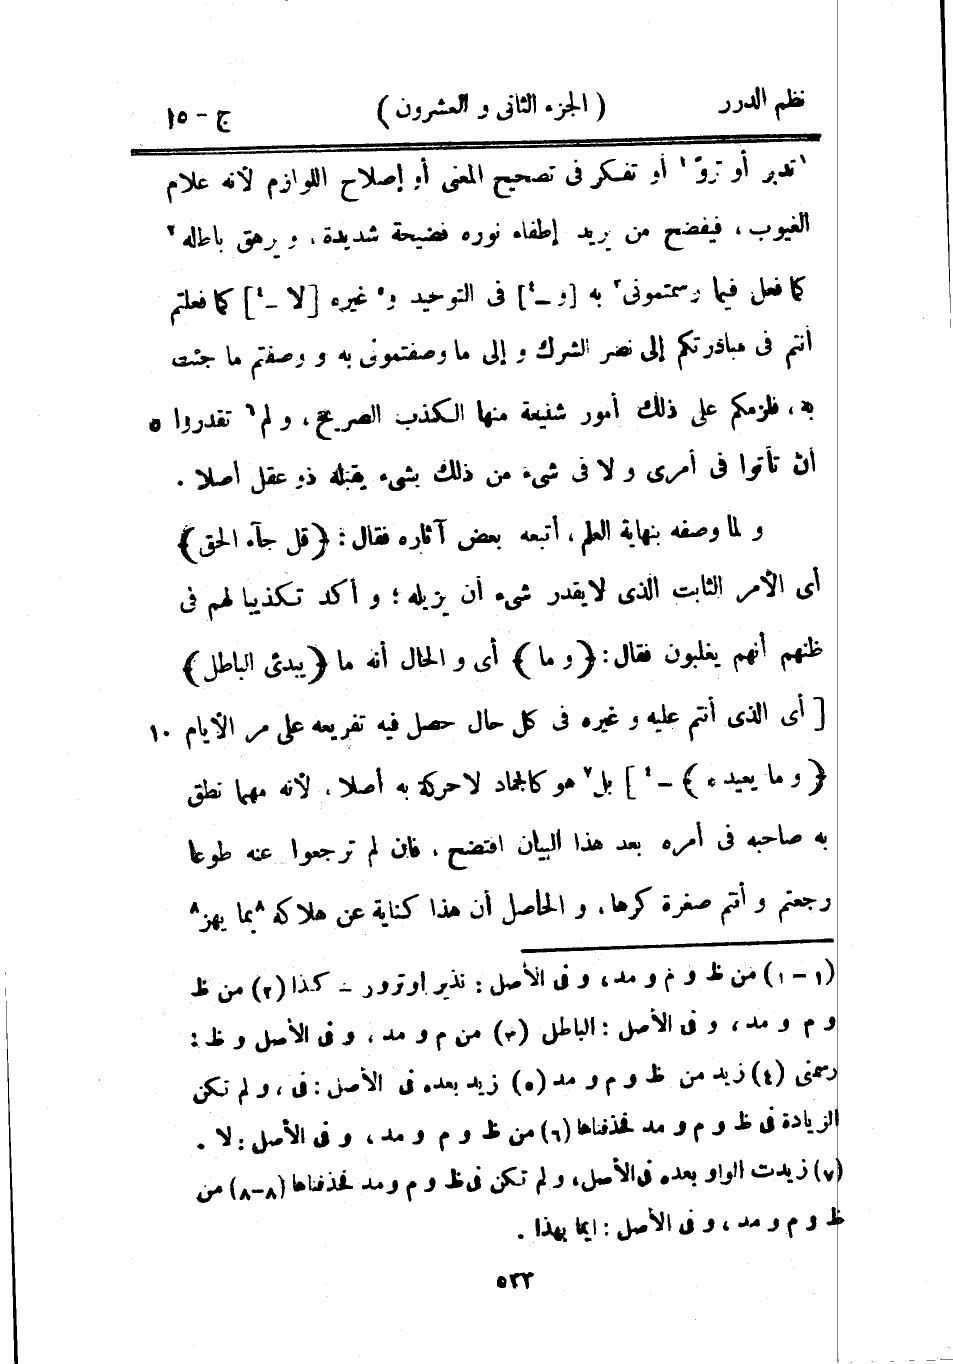 نظم الدرر ( الجزء الثانى و العشرون ) ج - ١٥
١تدبر أو تروّ١ أو تفكر فى تصحيح المعنى أو إصلاح اللوازم لأنه علام
الغيوب ، فيفضح من يريد إطفاء نوره فضيحة شديدة ، و يرهق باطله٢
كما فعل فيما رسمتمونى٣ به [و -٤] فى التوحيد و٥ غيره [لا -٤] كما فعلتم
أنتم فى مباذرتكم إلى نصر الشرك و إلى ما وصفتمونى به و وصفتم ما جئت
به ، فلزمكم على ذلك أمور شفيعة منها الكذب الصريح ، و لم٦ تقدروا ٥
أن تأتوا فى أمرى و لا فى شىء من ذلك بشىء يقبله ذو عقل أصلا .
و لما وصفه بنهاية العلم ، أتبعه بعض آثاره فقال : ﴿ قل جآء الحق ﴾
أى الأمر الثابت الذى لا يقدر شىء أن يزيله ؛ و أكد تكذيبا لهم فى
ظنهم أنهم يغلبون فقال : ﴿ و ما ﴾ أى و الحال أنه ما ﴿ يبدئى الباطل ﴾
[ أى الذى أنتم عليه و غيره فى كل حال حصل فيه تفريعه على مر الأيام ١٠
﴿ و ما يعيد ه ﴾ -٤ ] بل٧ هو كالجماد لا حركة به أصلا ، لأنه مهما نطق
به صاحبه فى أمره بعد هذا البيان افتضح ، فان لم ترجعوا عنه طوعا
رجعتم و أنتم صغرة كرها ، و الحاصل أن هذا كناية عن هلاكه ٨بما يهز٨
(١ - ١) من ظ و م و مد ، و فى الأصل : نذير او ترور - كذا (٢) من ظ
و م و مد ، و فى الأصل : الباطل (٣) من م و مد ، و فى الأصل و ظ :
رسمنى (٤) زيد من ظ و م و مد (٥) زيد بعده فى الأصل : فى ، و لم تكن
الزيادة فى ظ و م و مد فحذفناها (٦) من ظ و م و مد ، و فى الأصل : لا .
(٧) زيدت الواو بعده فى الأصل ، و لم تكن فى ظ و م و مد فحذفناها (٨-٨) من
ظ و م و مد ، و فى الأصل : ايما بهذا .
٥٣٣